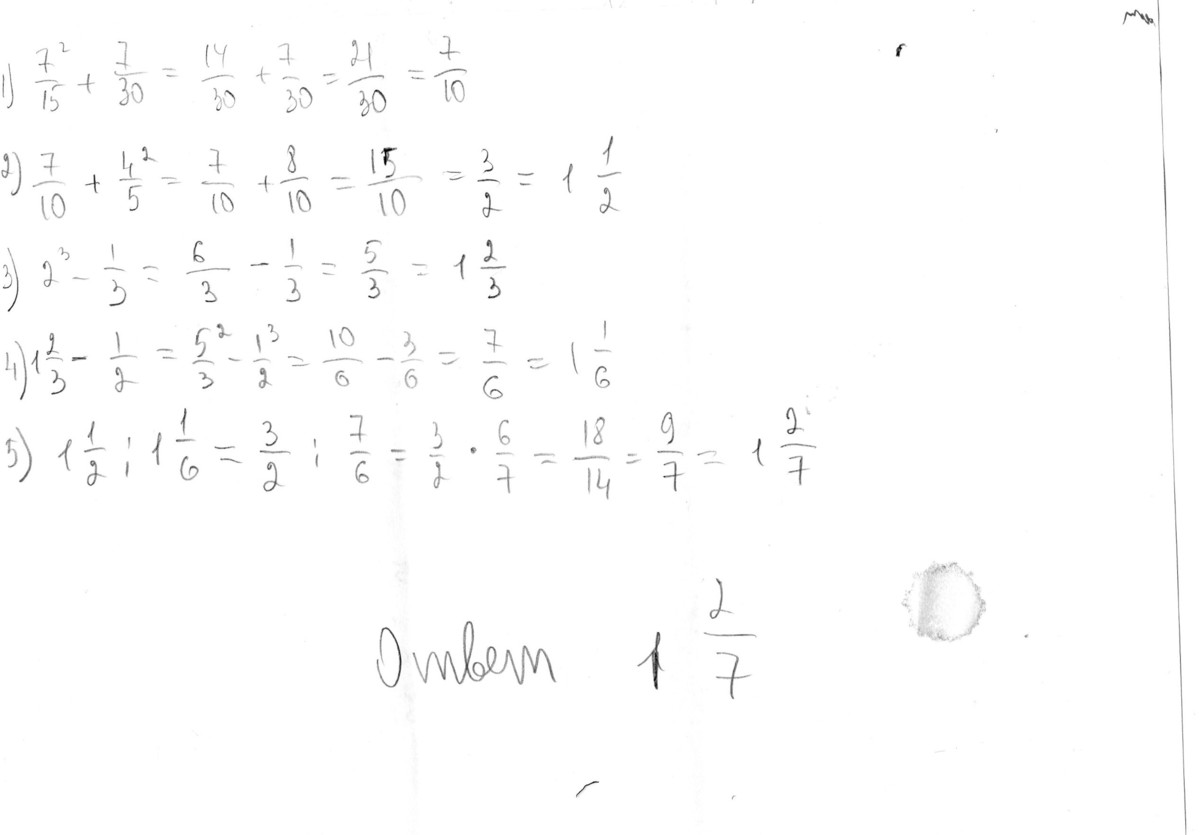 1) 7²/15 + 7/30 = 14/30 + 7/30 = 21/30 = 7/10
2) 7/10 + 4²/5 = 7/10 + 8/10 = 15/10 = 3/2 = 1 1/2
3) 2³ - 1/3 = 6/3 - 1/3 = 5/3 = 1 2/3
4) 1 2/3 - 1/2 = 5²/3 - 1³/2 = 10/6 - 3/6 = 7/6 = 1 1/6
5) 1 1/2 : 1 1/6 = 3/2 : 7/6 = 3/2 · 6/7 = 18/14 = 9/7 = 1 2/7
Ответ 1 2/7